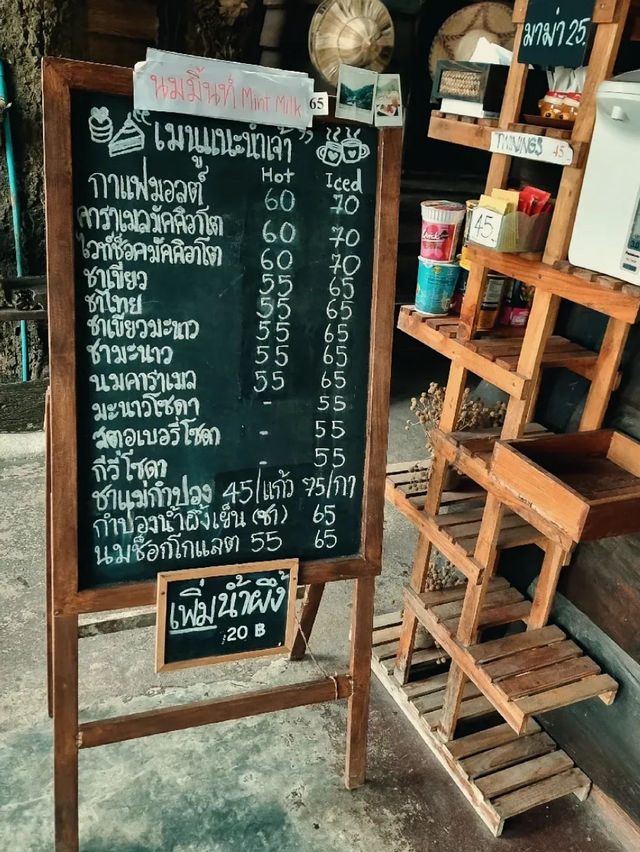 นมมิ้นท์ Mint Milk 65
"เมนูแนะนำเจ้า"
Hot Iced
กาแฟมอลต์ 60 70
คาราเมลมัคคิอาโต 60 70
ไวท์ช็อคมัคคิอาโต 60 70
ชาเขียว 55 65
ชาไทย 55 65
ชาเขียวมะนาว 55 65
ชามะนาว 55 65
นมคาราเมล 55 65
มะนาวโซดา - 55
สตอเบอรี่โซดา - 55
กีวี่โซดา - 55
ชาแม่กำปอง 45/แก้ว 75/กา
กำปองน้ำผึ้งเย็น (ชา) 65
นมช็อกโกแลต 55 65
เพิ่มน้ำผึ้ง
20 B
มาม่า 25.
TWININGS 45.
45.